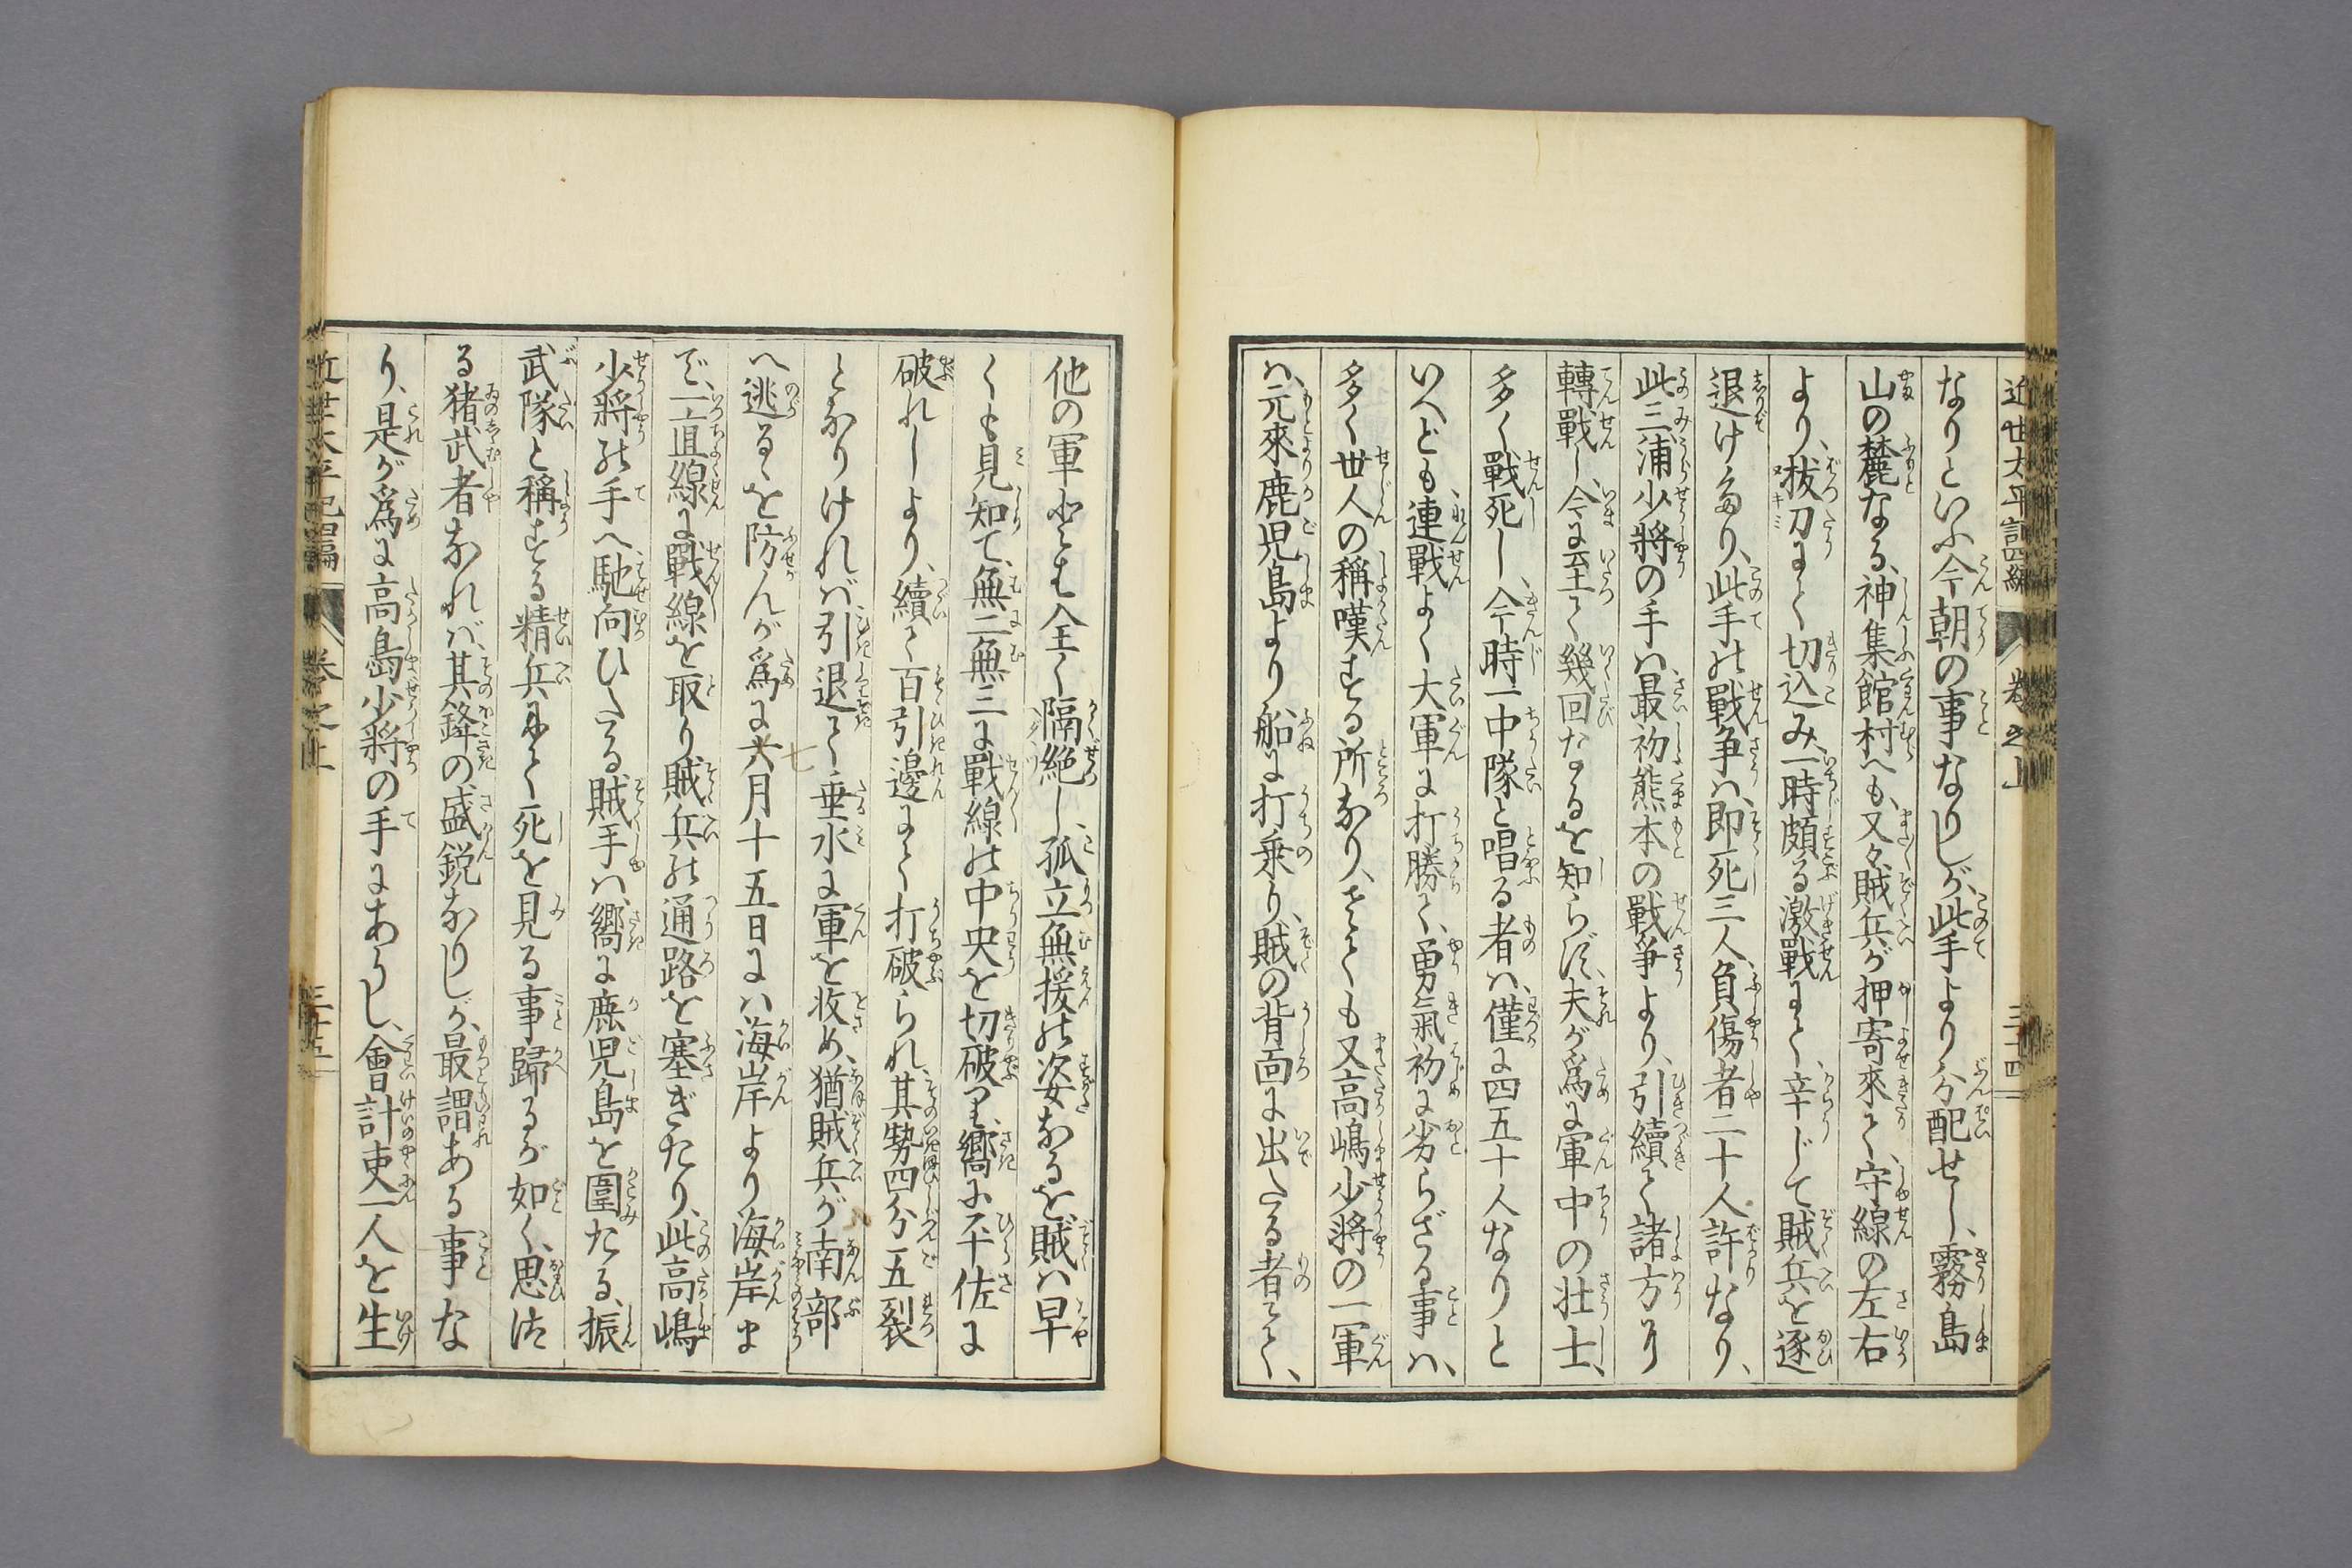 近世太平記四編 卷之上 三十四
なりといふ今朝の事なりしが、此手より分配せし、霧島
山の麓なる、神集館村へも、又々賊兵が押寄來て、守線の左右
より、抜刀にて切込み、一時頗る激戰にて、辛じて賊兵を逐
退けたり、此手の戰争は、即死三人、負傷者二十人許なり、
此三浦少將の手は、最初熊本の戰爭より、引續て諸方に
轉戰し、今に至て幾回なるを知らず、夫が爲に軍中の壮士、
多く戰死し、今時一中隊と唱る者は、僅に四五十人なりと
いへども、連戰よく大軍に打勝て、勇氣初に劣らざる事は、
多く世人の稱嘆する所なり、さても又高嶋少將の一軍
は、元來鹿児島より船に打乗り、賊の背面に出たる者にて、
他の軍とは全く隔絶し、孤立無援の姿なるを、賊は早
くも見知て、無二無三に戰線の中央を切破り、嚮に平佐に
破れしより、續て百引邊にて打破られ、其勢四分五裂
となりければ、引退て垂水に軍を收め、猶賊兵が南部
へ逃るゝを防んが爲に、六七月十五日には海岸より海岸ま
で、一直線に戰線を取り、賊兵の通路を塞ぎたり、此高嶋
少將の手へ馳向ひたる賊手は、嚮に鹿児島を圍たる、振
武隊と稱する精兵にて、死を見る事歸るが如く、思ほ
る猪武者なれば、其鋒の盛鋭なりしが、最謂ある事な
り、是が爲に高島少將の手にありし、會計吏一人を生
近世太平記四編 卷之上 三十五